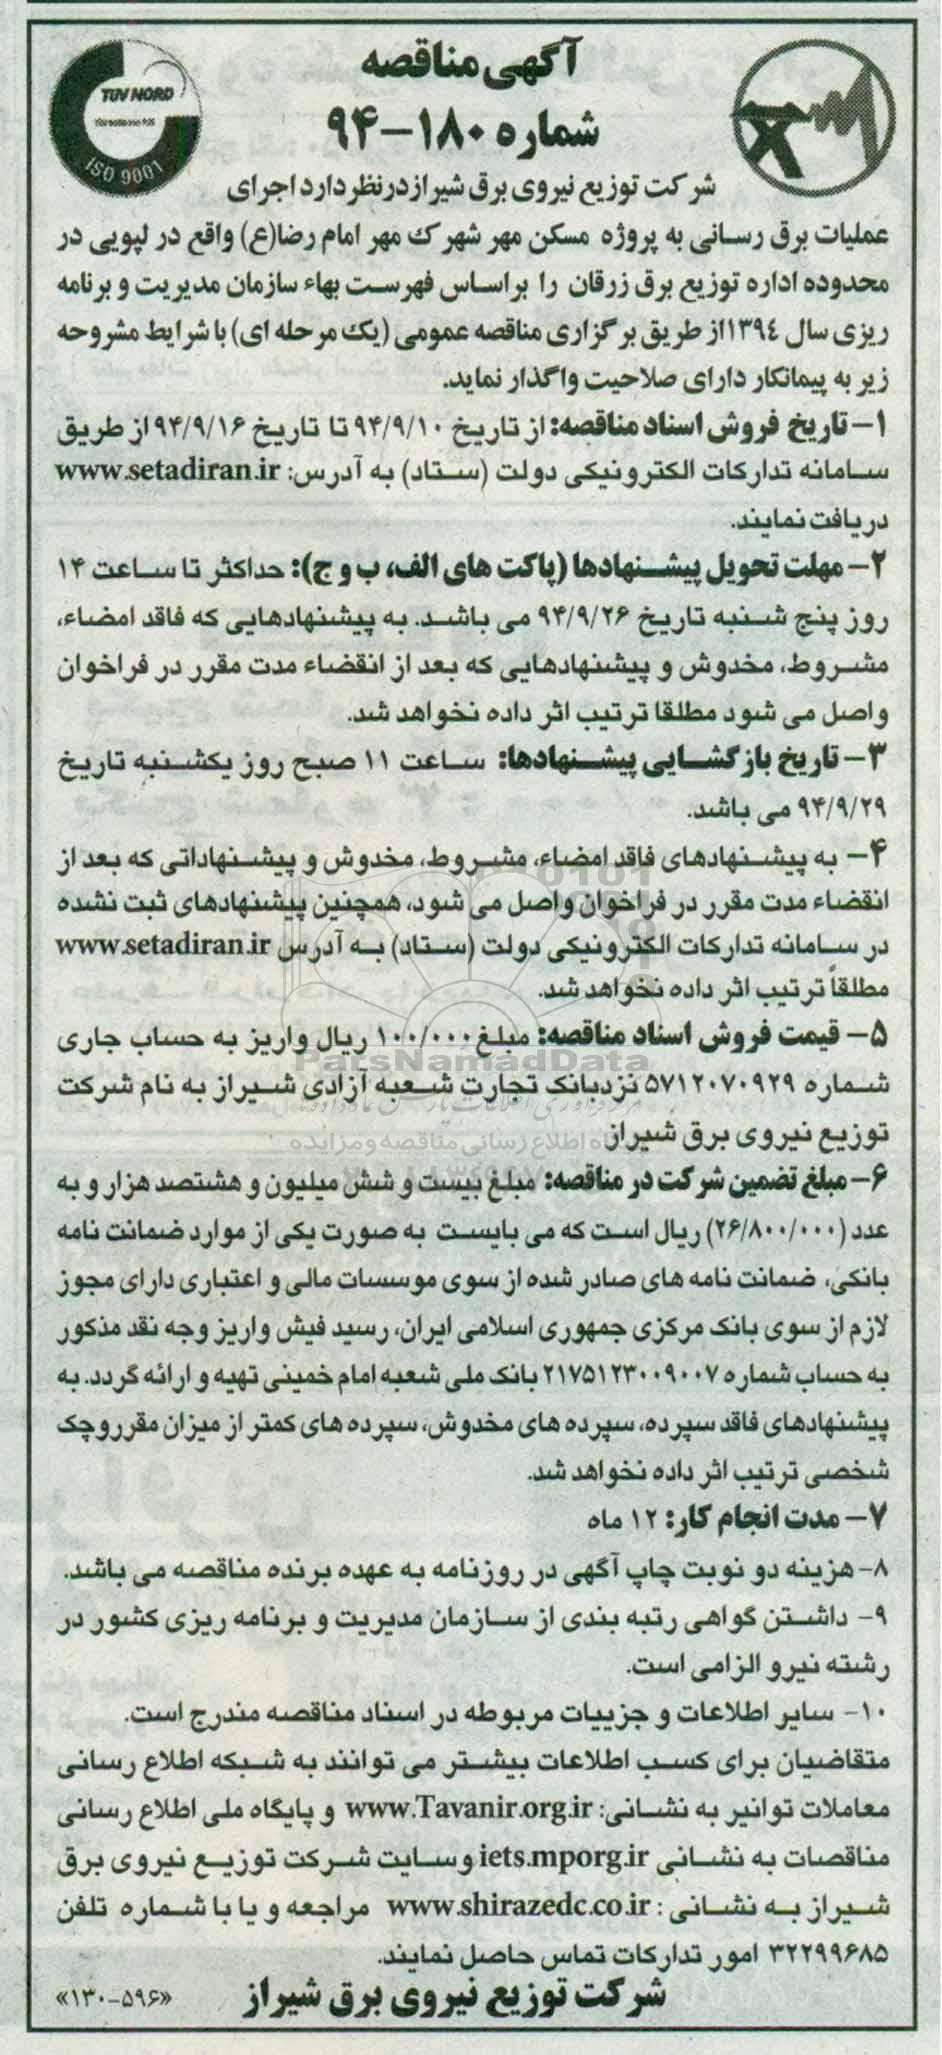 آگهی مناقصه
شماره ۱۸۰-۹۴
TUV NORD
ISO 9001
شرکت توزیع نیروی برق شیراز در نظر دارد اجرای
عملیات برق رسانی به پروژه مسکن مهر شهرک مهر امام رضا(ع) واقع در لپویی در
محدوده اداره توزیع برق زرقان را براساس فهرست بهاء سازمان مدیریت و برنامه
ریزی سال ۱۳۹۴ از طریق برگزاری مناقصه عمومی (یک مرحله ای) با شرایط مشروحه
زیر به پیمانکار دارای صلاحیت واگذار نماید.
۱- تاریخ فروش اسناد مناقصه: از تاریخ ۹۴/۹/۱۰ تا تاریخ ۹۴/۹/۱۶ از طریق
سامانه تدارکات الکترونیکی دولت (ستاد) به آدرس: www.setadiran.ir
دریافت نمایند.
۲- مهلت تحویل پیشنهادها (پاکت های الف، ب و ج): حداکثر تا ساعت ۱۴
روز پنج شنبه تاریخ ۹۴/۹/۲۶ می باشد. به پیشنهادهایی که فاقد امضاء،
مشروط، مخدوش و پیشنهادهایی که بعد از انقضاء مدت مقرر در فراخوان
واصل می شود مطلقا ترتیب اثر داده نخواهد شد.
۳- تاریخ بازگشایی پیشنهادها: ساعت ۱۱ صبح روز یکشنبه تاریخ
۹۴/۹/۲۹ می باشد.
۴- به پیشنهادهای فاقد امضاء، مشروط، مخدوش و پیشنهاداتی که بعد از
انقضاء مدت مقرر در فراخوان واصل می شود، همچنین پیشنهادهای ثبت نشده
در سامانه تدارکات الکترونیکی دولت (ستاد) به آدرس www.setadiran.ir
مطلقاً ترتیب اثر داده نخواهد شد.
۵- قیمت فروش اسناد مناقصه: مبلغ ۱۰۰/۰۰۰ ریال واریز به حساب جاری
ParsNamadData
شماره ۵۷۱۲۰۷۰۹۲۹ نزد بانک تجارت شعبه آزادی شیراز به نام شرکت
توزیع نیروی برق شیراز
۶- مبلغ تضمین شرکت در مناقصه: مبلغ بیست و شش میلیون و هشتصد هزار و به
عدد (۲۶/۸۰۰/۰۰۰) ریال است که می بایست به صورت یکی از موارد ضمانت نامه
بانکی، ضمانت نامه های صادر شده از سوی موسسات مالی و اعتباری دارای مجوز
لازم از سوی بانک مرکزی جمهوری اسلامی ایران، رسید فیش واریز وجه نقد مذکور
به حساب شماره ۲۱۷۵۱۲۳۰۰۹۰۰۷ بانک ملی شعبه امام خمینی تهیه و ارائه گردد. به
پیشنهادهای فاقد سپرده، سپرده های مخدوش، سپرده های کمتر از میزان مقرر و چک
شخصی ترتیب اثر داده نخواهد شد.
۷- مدت انجام کار: ۱۲ ماه
۸- هزینه دو نوبت چاپ آگهی در روزنامه به عهده برنده مناقصه می باشد.
۹- داشتن گواهی رتبه بندی از سازمان مدیریت و برنامه ریزی کشور در
رشته نیرو الزامی است.
۱۰- سایر اطلاعات و جزییات مربوطه در اسناد مناقصه مندرج است.
متقاضیان برای کسب اطلاعات بیشتر می توانند به شبکه اطلاع رسانی
معاملات توانیر به نشانی: www.Tavanir.org.ir و پایگاه ملی اطلاع رسانی
مناقصات به نشانی iets.mporg.ir و سایت شرکت توزیع نیروی برق
شیراز به نشانی : www.shirazedc.co.ir مراجعه و یا با شماره تلفن
۳۲۲۹۹۶۸۵ امور تدارکات تماس حاصل نمایند.
شرکت توزیع نیروی برق شیراز
«۱۳۰-۵۹۶»